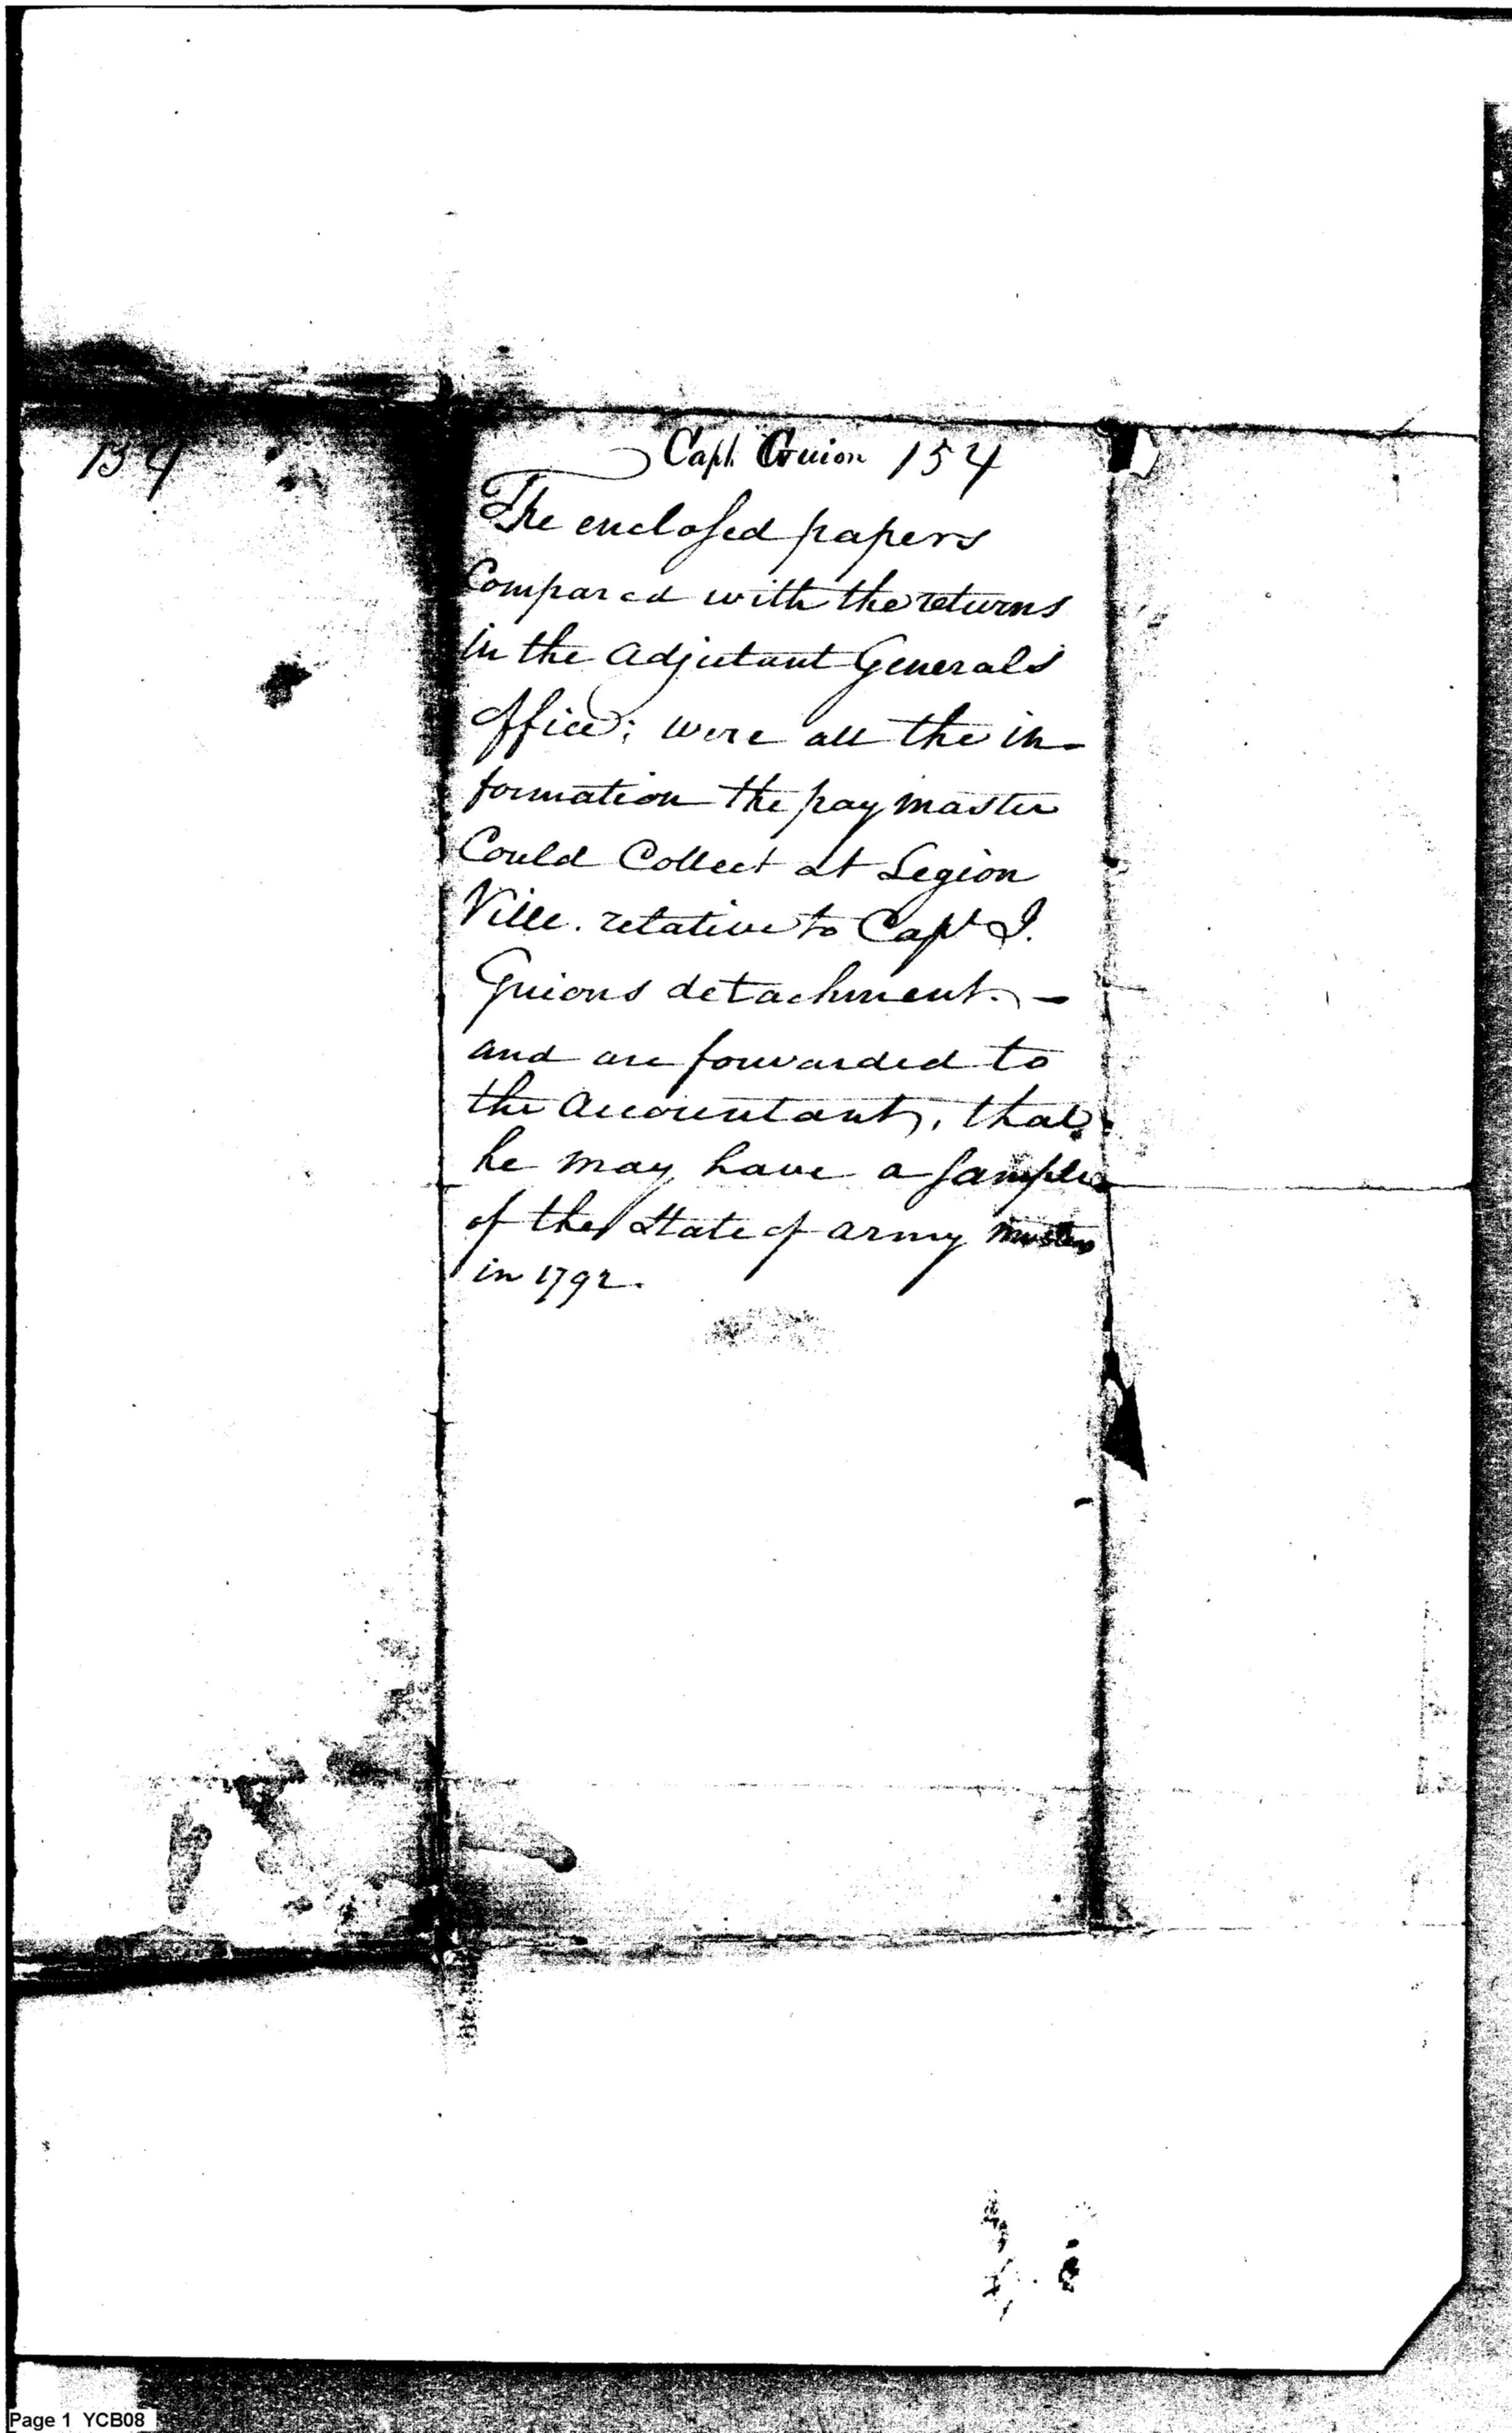 154
Capt. Guion 154
The enclosed papers
Compared with the returns
in the Adjutant Generals
office; were all the in-
formation the pay master
Could Collect at Legion
Ville. relative to Capt I.
Guions detachment. -
and are forwarded to
the Accountant, that
he may have a sample
of the State of army musters
in 1792.
Page 1 YCB08